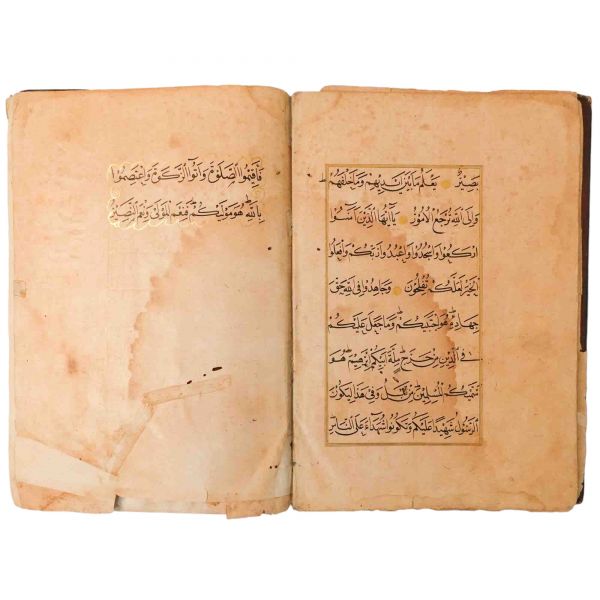 بَصِيرٌ يَعْلَمُ مَا بَيْنَ اَيْدِيهِمْ وَمَا خَلْفَهُمْ
وَاِلَى اللّٰهِ تُرْجَعُ الْاُمُورُ يَآ اَيُّهَا الَّذِينَ اٰمَنُوا
ارْكَعُوا وَاسْجُدُوا وَاعْبُدُوا رَبَّكُمْ وَافْعَلُوا
الْخَيْرَ لَعَلَّكُمْ تُفْلِحُونَ وَجَاهِدُوا فِي اللّٰهِ حَقَّ
جِهَادِهِ هُوَ اجْتَبٰيكُمْ وَمَا جَعَلَ عَلَيْكُمْ
فِي الدِّينِ مِنْ حَرَجٍ مِلَّةَ اَبِيكُمْ اِبْرٰهِيمَ هُوَ
سَمّٰيكُمُ الْمُسْلِمِينَ مِنْ قَبْلُ وَفِي هٰذَا لِيَكُونَ
الرَّسُولُ شَهِيدًا عَلَيْكُمْ وَتَكُونُوا شُهَدَآءَ عَلَى النَّاسِ
فَاَقِيمُوا الصَّلٰوةَ وَاٰتُوا الزَّكٰوةَ وَاعْتَصِمُوا
بِاللّٰهِ هُوَ مَوْلٰيكُمْ فَنِعْمَ الْمَوْلٰى وَنِعْمَ النَّصِيرُ